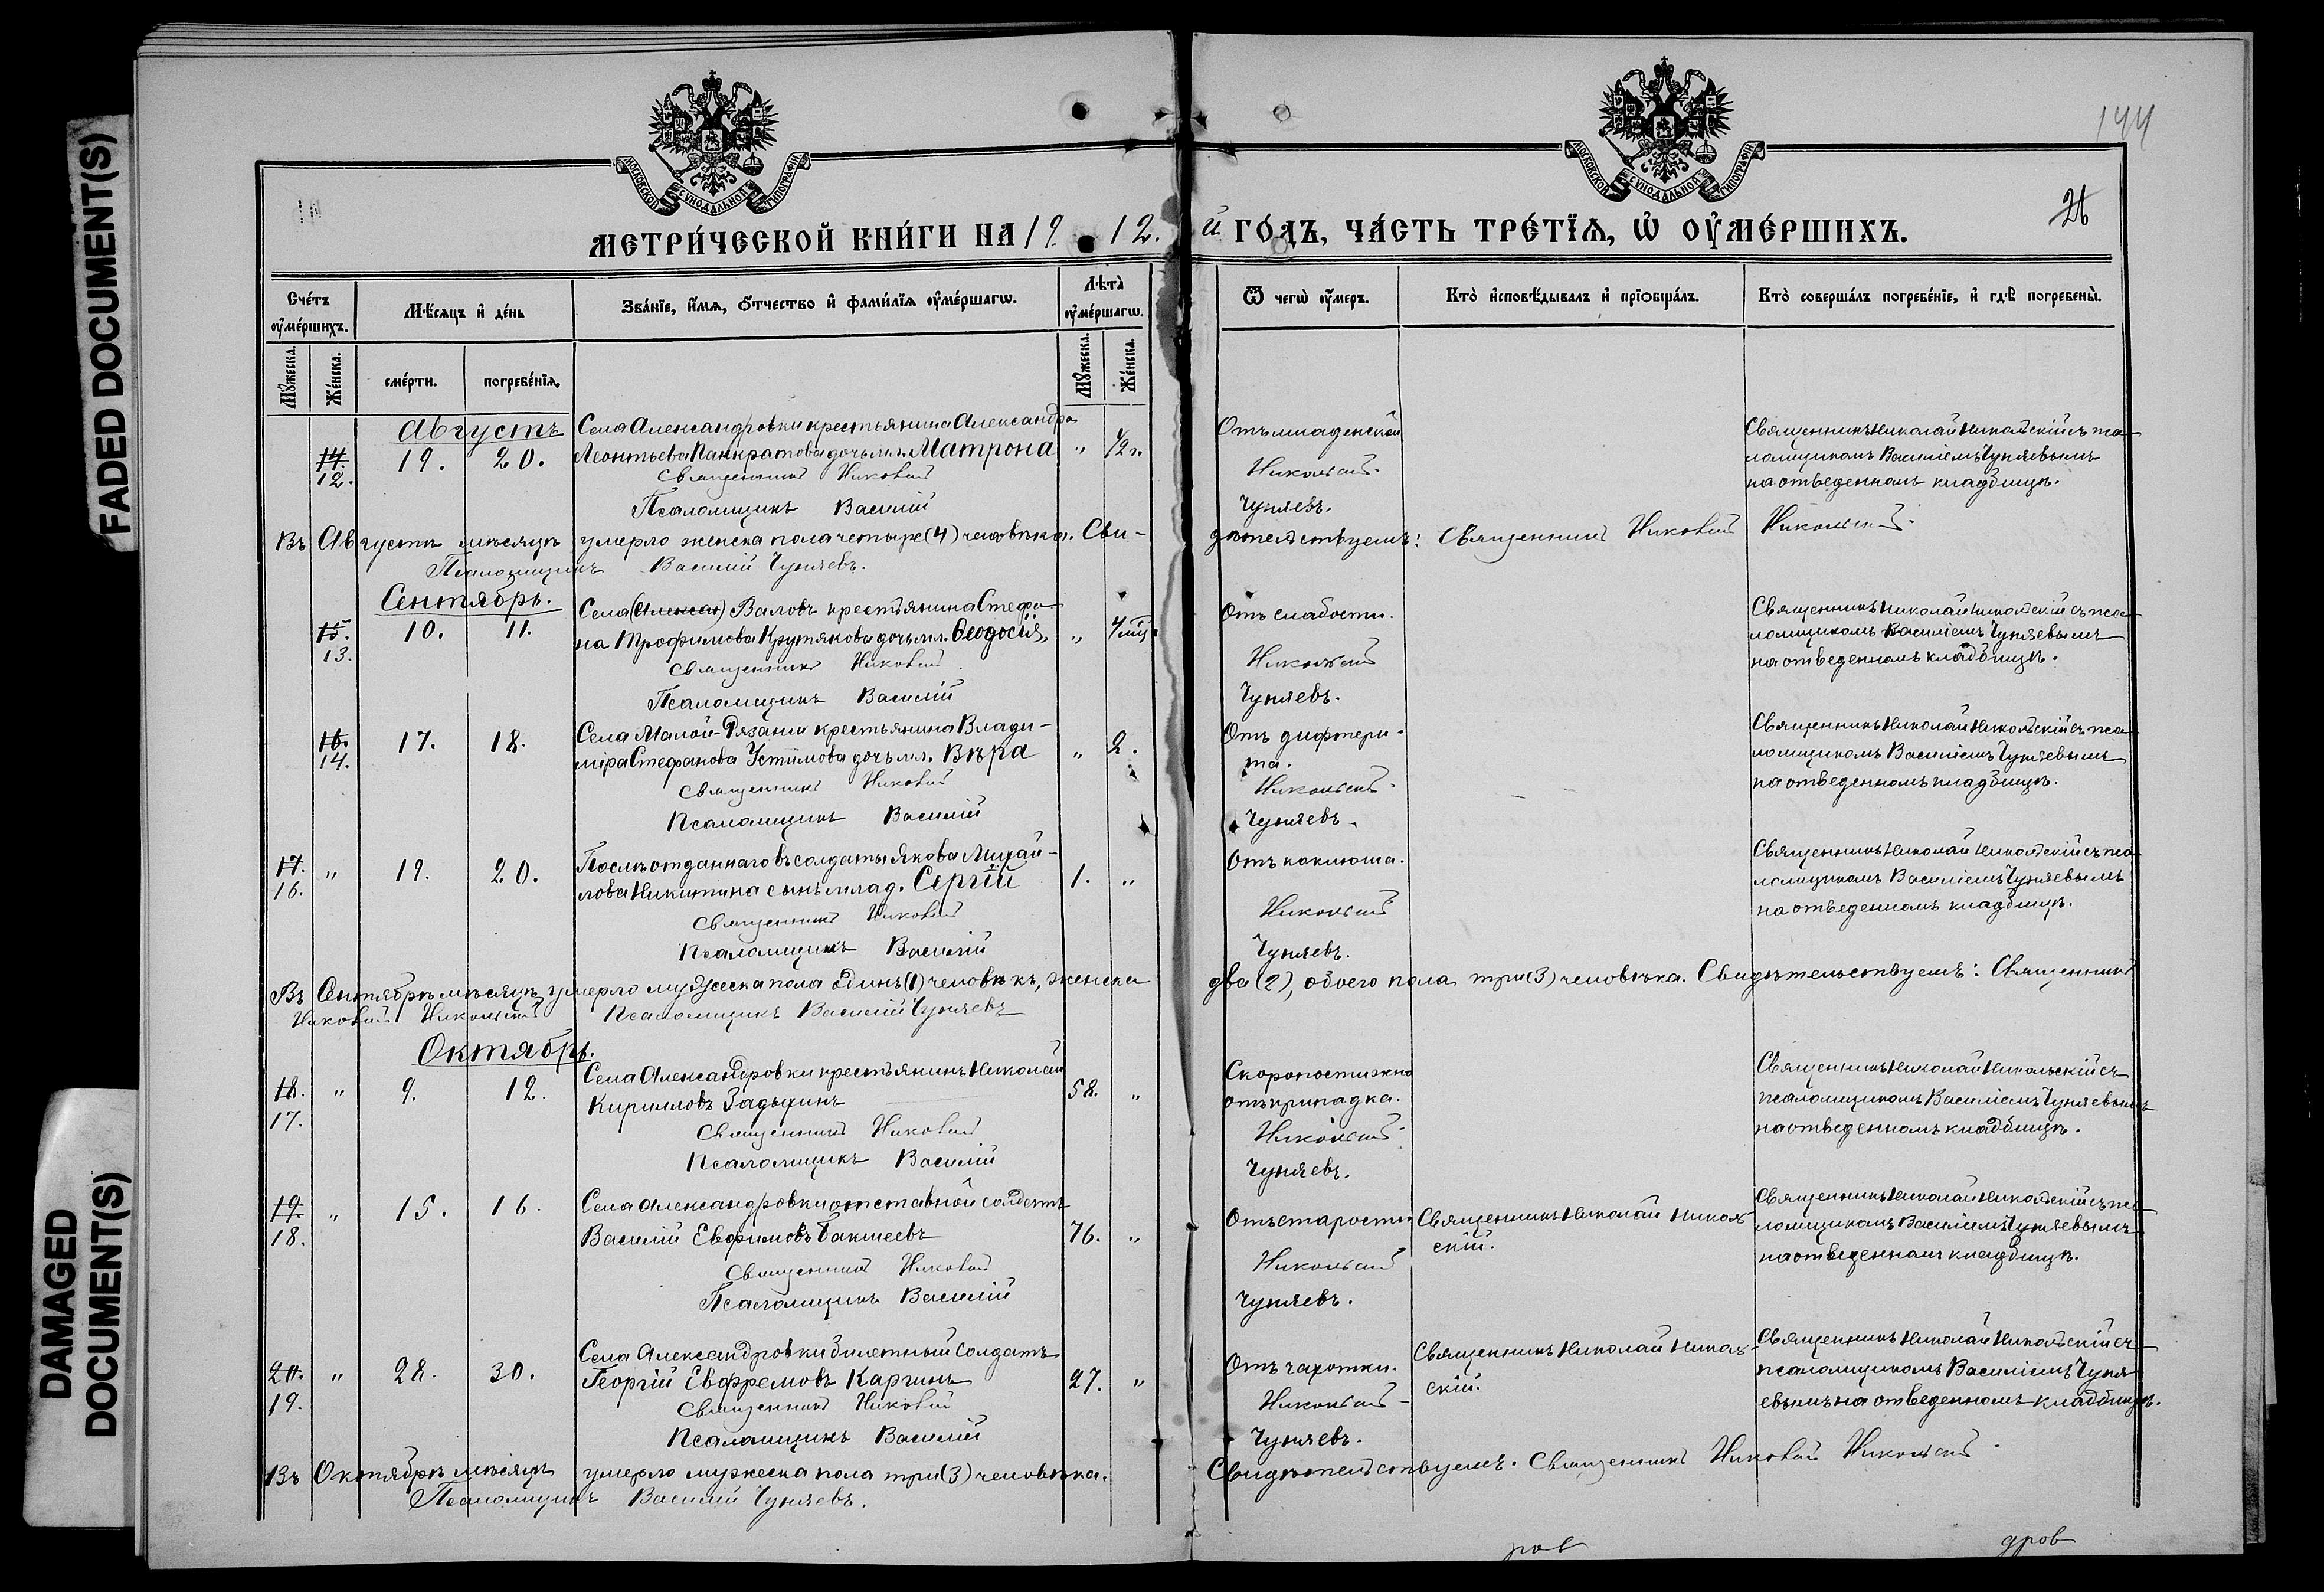 FADED DOCUMENT(S)
DAMAGED
DOCUMENT(S)
144
26
МОСКОВСКОЙ СѴНОДАЛЬНОЙ ТИПОГРАФІИ
МОСКОВСКОЙ СѴНОДАЛЬНОЙ ТИПОГРАФІИ
МЕТРИ́ЧЕСКОЙ КНИ́ГИ НА 1912.й ГО́ДЪ, ЧА́СТЬ ТРЕ́ТЇѦ, Ѡ҆ ОУ҆МЕ́РШИХЪ.
Сче́тъ оу҆ме́ршихъ.
Мѣ́сяцъ и҆ де́нь
Зва́нїе, и҆́мя, ѻ҆́тчество и҆ фами́лїя оу҆ме́ршагѡ.
Лѣ́та оу҆ме́ршагѡ.
Ѿ чегѡ̀ оу҆́меръ.
Кто̀ и҆сповѣ́дывалъ и҆ прїѻбща́лъ.
Кто̀ соверша́лъ погребе́нїе, и҆ гдѣ̀ погребены̀.
Мꙋ́жеска.
Же́нска.
сме́рти.
погребе́нїя.
Мꙋ́жеска.
Же́нска.
Августъ
Села Александровки крестьянина Александра
14. 19. 20. Леонтьева Панкратова дочь мл. Матрона " 1/2 г.
12.
Священникъ Николай
Псаломщикъ Василій
Отъ младенской
Никольскій.
Чуняевъ.
Священникъ Николай Никольскій съ пса-
ломщикомъ Василіемъ Чуняевымъ
на отведенномъ кладбищѣ.
Въ Августѣ мѣсяцѣ умерло женска пола четыре (4) человѣка. Сви-
дѣтельствуемъ: Священникъ Николай Никольскій.
Псаломщикъ Василій Чуняевъ.
Сентябрь.
Села (Алексан) Валовъ крестьянина Стефа-
15. 10. 11. на Трофимова Крутякова дочь мл. Ѳеодосія, "
13.
Священникъ Николай
Псаломщикъ Василій
Отъ слабости.
Никольскій
Чуняевъ.
Священникъ Николай Никольскій съ пса-
ломщикомъ Василіемъ Чуняевымъ
на отведенномъ кладбищѣ.
Села Малой-Рязани крестьянина Влади-
16. 17. 18. міра Стефанова Устимова дочь мл. Вѣра " 2.
14.
Священникъ Николай
Псаломщикъ Василій
Отъ дифтери-
та.
Никольскій.
Чуняевъ.
Священникъ Николай Никольскій съ пса-
ломщикомъ Василіемъ Чуняевымъ
на отведенномъ кладбищѣ.
Послѣ отданнаго въ солдаты Якова Михай-
17. " 19. 20. лова Никитина сынъ млад. Сергій 1. "
16.
Священникъ Николай
Псаломщикъ Василій
Отъ коклюша.
Никольскій
Чуняевъ.
Священникъ Николай Никольскій съ пса-
ломщикомъ Василіемъ Чуняевымъ
на отведенномъ кладбищѣ.
Въ Сентябрѣ мѣсяцѣ умерло мужеска пола одинъ (1) человѣкъ, женска
два (2), обоего пола три (3) человѣка. Свидѣтельствуемъ: Священникъ
Николай Никольскій Псаломщикъ Василій Чуняевъ
Октябрь.
Села Александровки крестьянинъ Николай
18. " 9. 12. Кирилловъ Задыхинъ 58. "
17.
Священникъ Николай
Псаломщикъ Василій
Скоропостижно
отъ припадка.
Никольскій.
Чуняевъ.
Священникъ Николай Никольскій съ
псаломщикомъ Василіемъ Чуняевымъ
на отведенномъ кладбищѣ.
19. " 15. 16. Села Александровки отставной солдатъ
18. Василій Евфимовъ Бакшеевъ 76. "
Священникъ Николай
Псаломщикъ Василій
Отъ старости
Никольскій
Чуняевъ.
Священникъ Николай Николь-
скій.
Священникъ Николай Никольскій съ пса-
ломщикомъ Василіемъ Чуняевымъ
на отведенномъ кладбищѣ.
Села Александровки билетный солдатъ
20. " 28. 30. Георгій Евфремовъ Каргинъ 27. "
19.
Священникъ Николай
Псаломщикъ Василій
Отъ чахотки.
Никольскій
Чуняевъ.
Священникъ Николай Николь-
скій.
Священникъ Николай Никольскій съ
псаломщикомъ Василіемъ Чуня-
евымъ на отведенномъ кладбищѣ.
Въ Октябрѣ мѣсяцѣ умерло мужеска пола три (3) человѣка.
Свидѣтельствуемъ. Священникъ Николай Никольскій
Псаломщикъ Василій Чуняевъ.
ров
дров